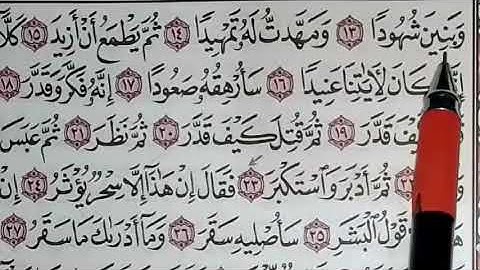 وَبَنِينَ شُهُودًا ١٣ وَمَهَّدتُّ لَهُۥ تَمْهِيدًا ١٤ ثُمَّ يَطْمَعُ أَنْ أَزِيدَ ١٥ كَلَّا
كَانَ لِأَيَٰتِنَا عَنِيدًا ١٦ سَأُرْهِقُهُۥ صَعُودًا ١٧ إِنَّهُۥ فَكَّرَ وَقَدَّرَ ١٨
كَيْفَ قَدَّرَ ١٩ ثُمَّ قُتِلَ كَيْفَ قَدَّرَ ٢٠ ثُمَّ نَظَرَ ٢١ ثُمَّ عَبَسَ
ثُمَّ أَدْبَرَ وَٱسْتَكْبَرَ ٢٣ فَقَالَ إِنْ هَٰذَآ إِلَّا سِحْرٌ يُؤْثَرُ ٢٤ إِنْ
قَوْلُ ٱلْبَشَرِ ٢٥ سَأُصْلِيهِ سَقَرَ ٢٦ وَمَآ أَدْرَىٰكَ مَا سَقَرُ ٢٧